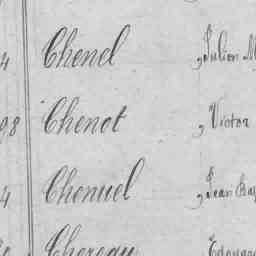 4 Chenel , Julien M
98 Chenot , Victor
4 Chenuel , Jean Bap
Chereau Edouard